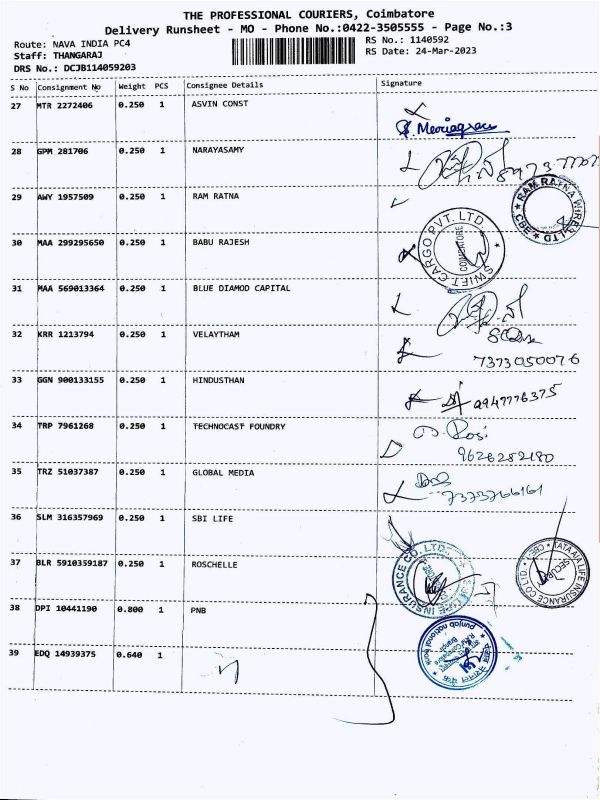 THE PROFESSIONAL COURIERS, Coimbatore
Delivery Runsheet - MO - Phone No.:0422-3505555 - Page No.:3
Route: NAVA INDIA PC4
RS No.: 1140592
Staff: THANGARAJ
RS Date: 24-Mar-2023
DRS No.: DCJB114059203
S No Consignment No Weight PCS Consignee Details Signature
27 MTR 2272406 0.250 1 ASVIN CONST
28 GPM 281706 0.250 1 NARAYASAMY
29 AWY 1957509 0.250 1 RAM RATNA
RAM RATNA WIRES LTD CBE
30 MAA 299295650 0.250 1 BABU RAJESH
SWIFT CARGO PVT. LTD. COIMBATORE
31 MAA 569013364 0.250 1 BLUE DIAMOD CAPITAL
32 KRR 1213794 0.250 1 VELAYTHAM
7373050076
33 GGN 900133155 0.250 1 HINDUSTHAN
34 TRP 7961268 0.250 1 TECHNOCAST FOUNDRY
9626282180
35 TRZ 51037387 0.250 1 GLOBAL MEDIA
36 SLM 316357969 0.250 1 SBI LIFE
INSURANCE CO. LTD.
TATA AIA LIFE INSURANCE CO LTD CBE
SECURITY
37 BLR 5910359187 0.250 1 ROSCHELLE
38 DPI 10441190 0.800 1 PNB
punjab national bank
39 EDQ 14939375 0.640 1